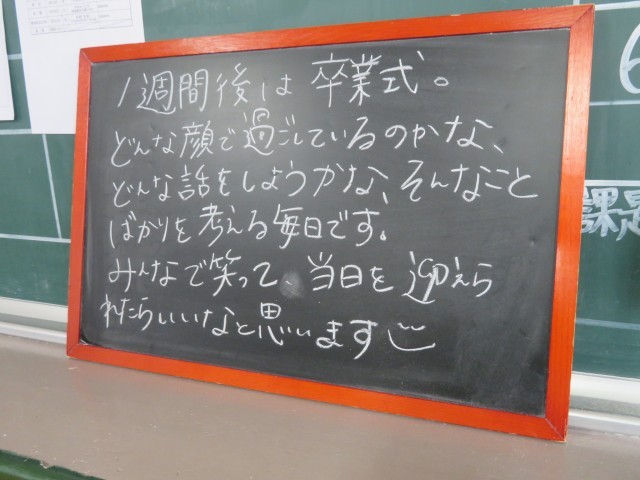 1週間後は 卒業式。
どんな顔で過ごしているのかな、
どんな話をしようかな、そんなこと
ばかりを考える毎日です。
みんなで笑って、当日を迎えら
れたらいいなと思います
課題